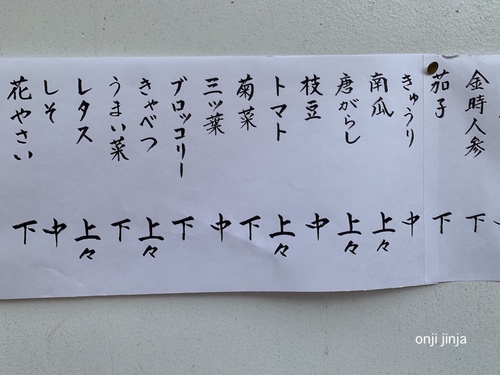 金時人参 下
茄子 下
きゅうり 中
南瓜 上々
唐がらし 上々
枝豆 中
トマト 上々
菊菜 下
三ツ葉 中
ブロッコリー 下
きゃべつ 上々
うまい菜 下
レタス 上々
しそ 中
花やさい 下
onji jinja